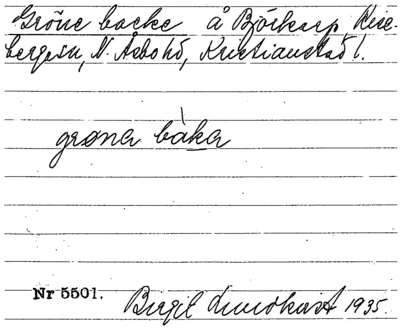 Gröne backe å Björkarp, Rise-
bergasn, N. Åsbo hd, Kristianstad l.
grøna bàka
Nr 5501.
Birgit Lundkvist 1935.